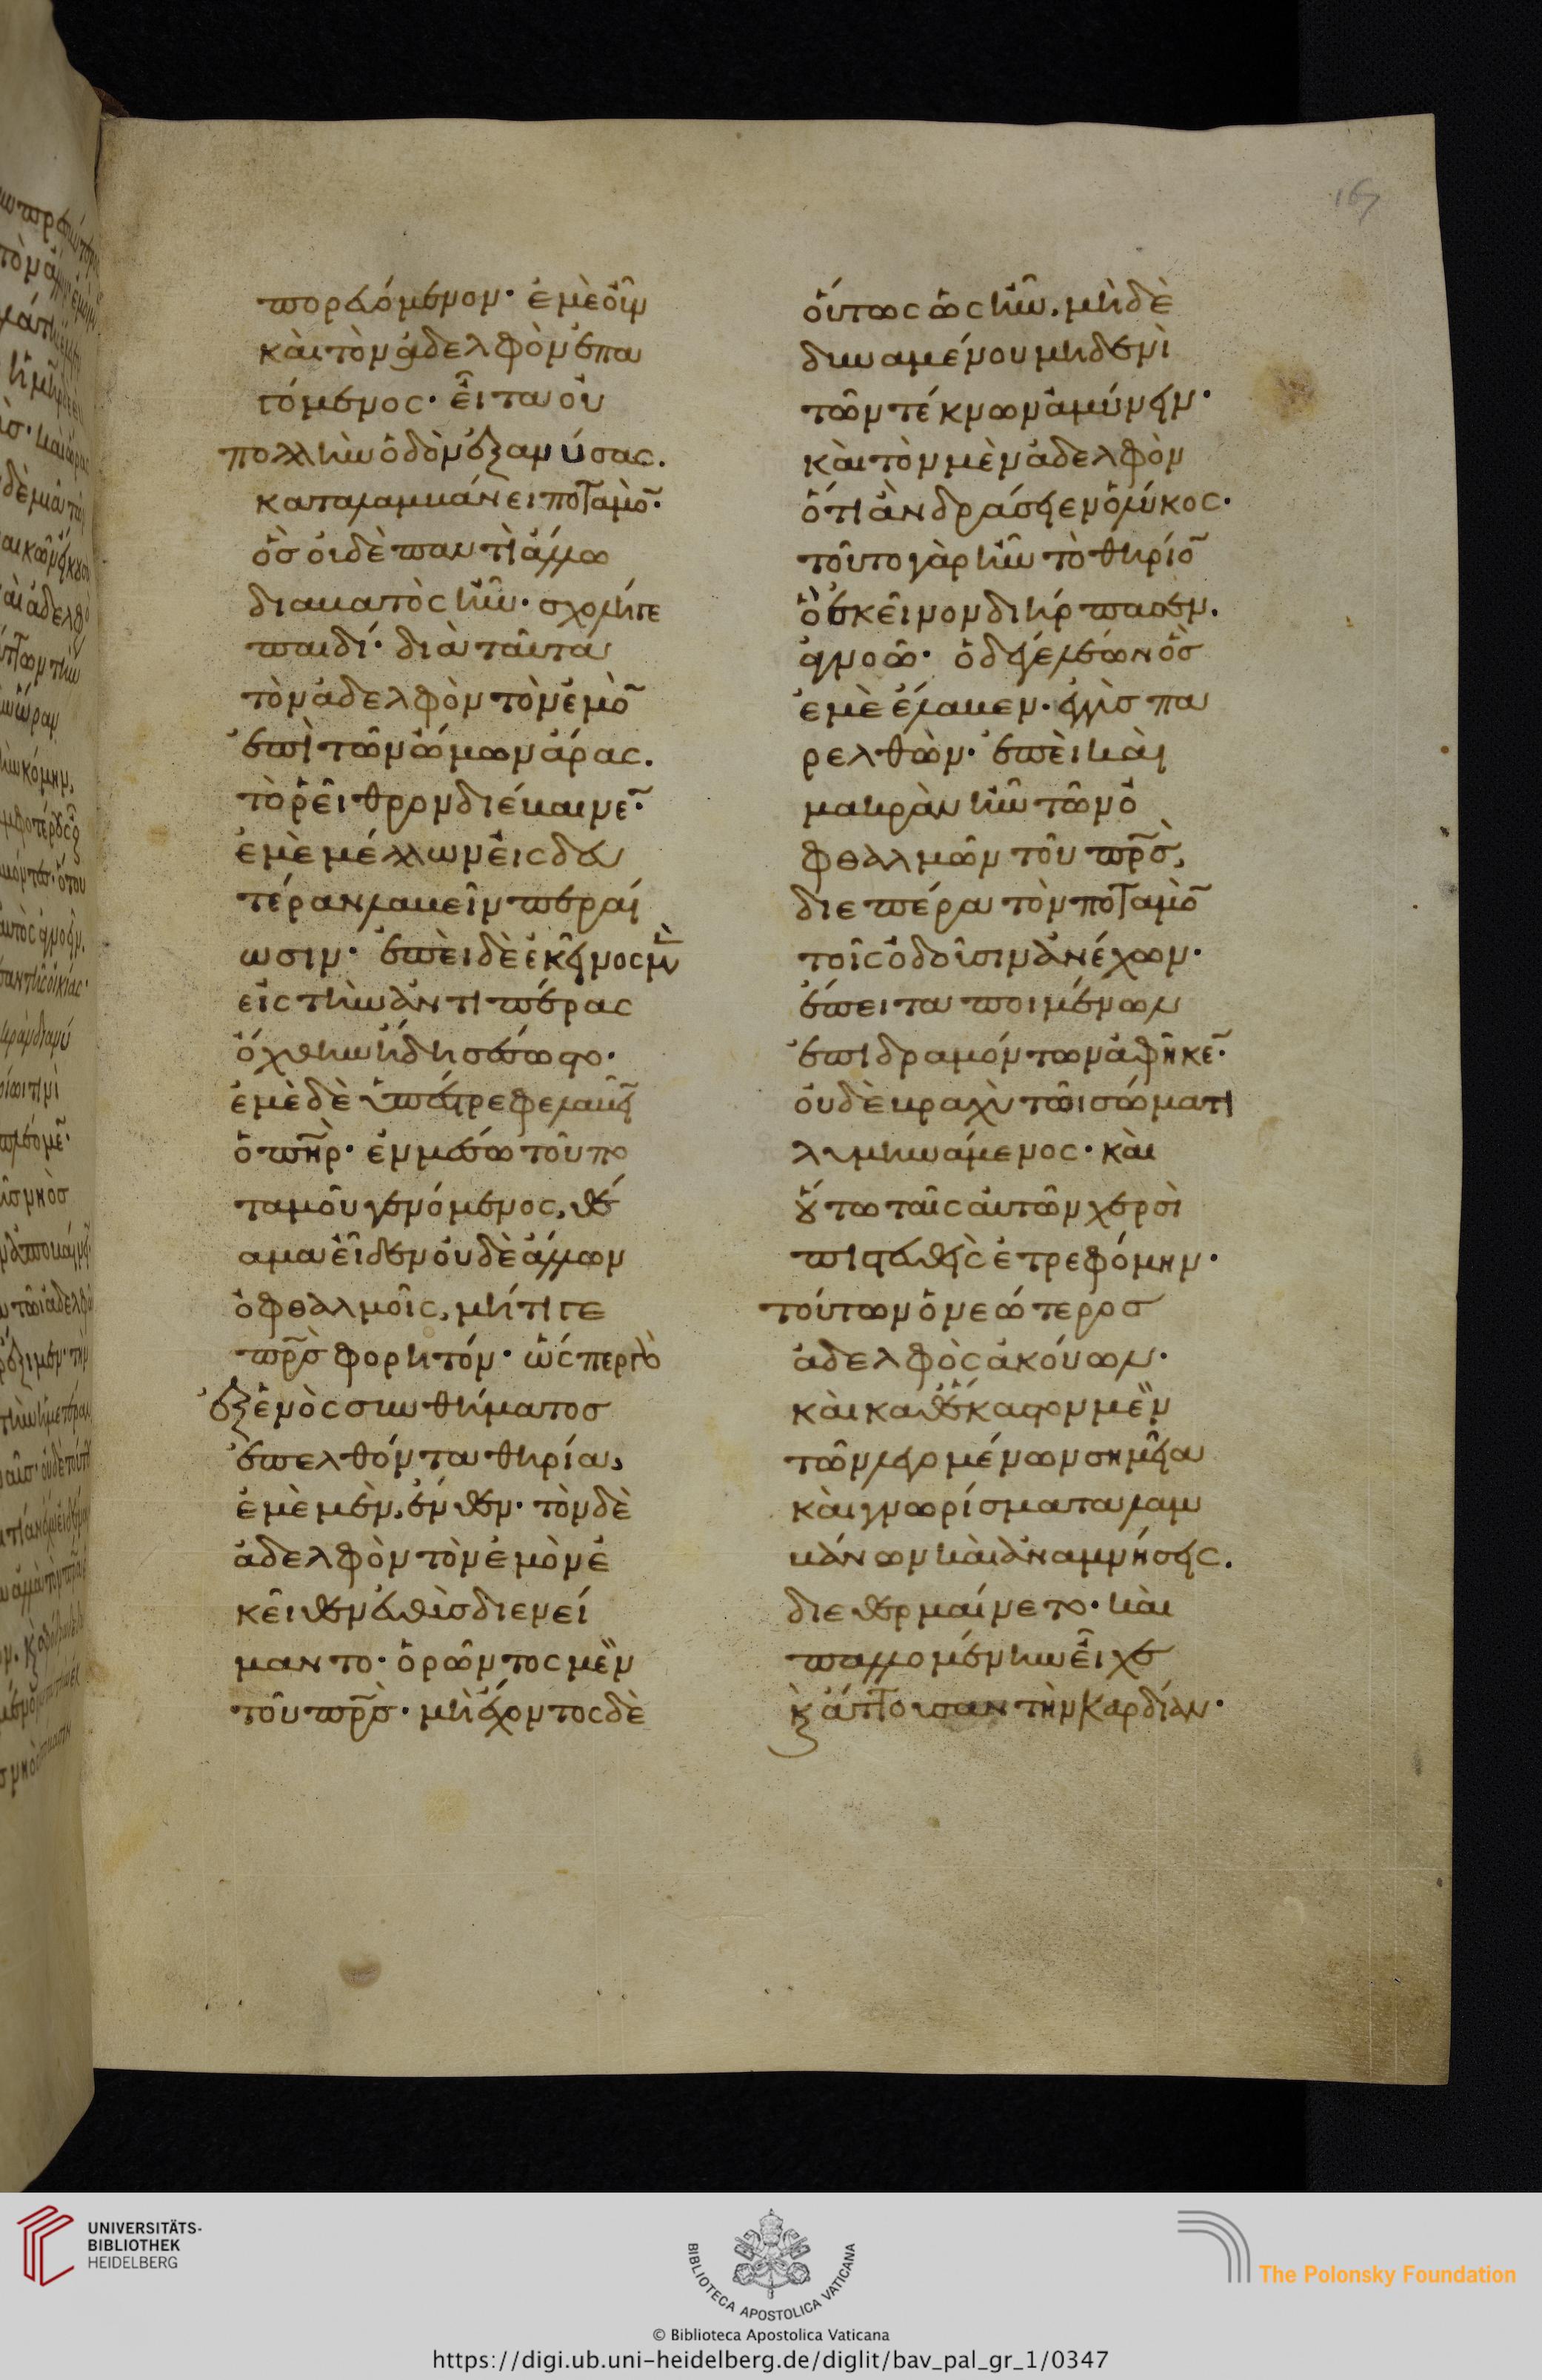 167
πορευόμενον· ἐμὲ οὖν
καὶ τὸν ἀδελφὸν ἐπα
γόμενος· εἶτα οὐ
πολλὴν ὁδὸν ἐξανύσας.
καταλαμβάνει ποταμὸ̅·
ὃς οὐδὲ πάντη ἄλλω
διαβατὸς ἦν· σχολῆγε
παιδί· διὰ ταῦτα
τὸν ἀδελφὸν τὸν ἐμὸ̅
ἐπὶ τῶν ὤμων ἄρας.
τὸ ῥεῖθρον διέβαινε̅·
ἐμὲ μέλλων εἰς δευ
τέραν λαβεῖν περαί
ωσιν· ἐπεὶ δὲ ἐκεῖνος μὲν
εἰς τὴν ἀντιπέρας
ὄχθην ἤδη σέσωστο·
ἐμὲ δὲ ὑπέτρεφε λαβεῖν
ὁ πη̅ρ· ἐν μέσω τοῦ πο
ταμοῦ γενόμενος, θέ
αμα εἶδεν οὐδὲ ἄλλων
ὀφθαλμοῖς, μήτι γε
πρ̅ς φορητόν· ὥσπερ γὰρ
ἐξ ἑνὸς συνθήματος
ἐπελθόντα θηρία,
ἐμὲ μὲν, ἔνθεν· τὸν δὲ
ἀδελφὸν τὸν ἐμὸν ἐ
κεῖθεν εὐθὺς διενεί
μαντο· ὁρῶντος μὲν
τοῦ πρ̅ς· μὴ ἔχοντος δὲ
οὕτως ὡς ἦν, μηδὲ
δυναμένου μηδενὶ
τῶν τέκνων ἀμύνειν·
καὶ τὸν μὲν ἀδελφὸν
ὅτι ἂν δράσειεν ὁ λύκος·
τοῦτο γὰρ ἦν τὸ θηρίο̅
ὃ ἐκεῖνον διήρπασεν.
ἀγνοῶ· ὁ δέ γε λέων ὃς
ἐμὲ ἔλαβεν· ἐγγὺς πα
ρελθὼν· ἐπεὶ καὶ
μακρὰν ἦν τῶν ὀ
φθαλμῶν τοῦ πρ̅ς,
διεπέρα τὸν ποταμὸ̅
τοῖς ὀδοῦσιν ἀνέχων·
ἔπειτα ποιμένων
ἐπιδραμόντων ἀφῆκε̅·
οὐδὲ βραχὺ τῶι σώματι
λυμηνάμενος· καὶ
οὕτω ταῖς αὐτῶν χερσὶ
πιστευθεὶς ἐτρεφόμην·
τούτων ὁ νεώτερος
ἀδελφὸς ἀκούων·
καὶ καθ' ἕκαστον μὲν
τῶν λεγομένων σημεῖα
καὶ γνωρίσματα λαμ
βάνων καὶ ἀναμνήσεις.
διεθερμαίνετο· καὶ
παλλομένην εἶχε
κ̀ ἅπτουσαν τὴν καρδίαν·
UNIVERSITÄTS-
BIBLIOTHEK
HEIDELBERG
BIBLIOTECA APOSTOLICA VATICANA
The Polonsky Foundation
© Biblioteca Apostolica Vaticana
https://digi.ub.uni-heidelberg.de/diglit/bav_pal_gr_1/0347